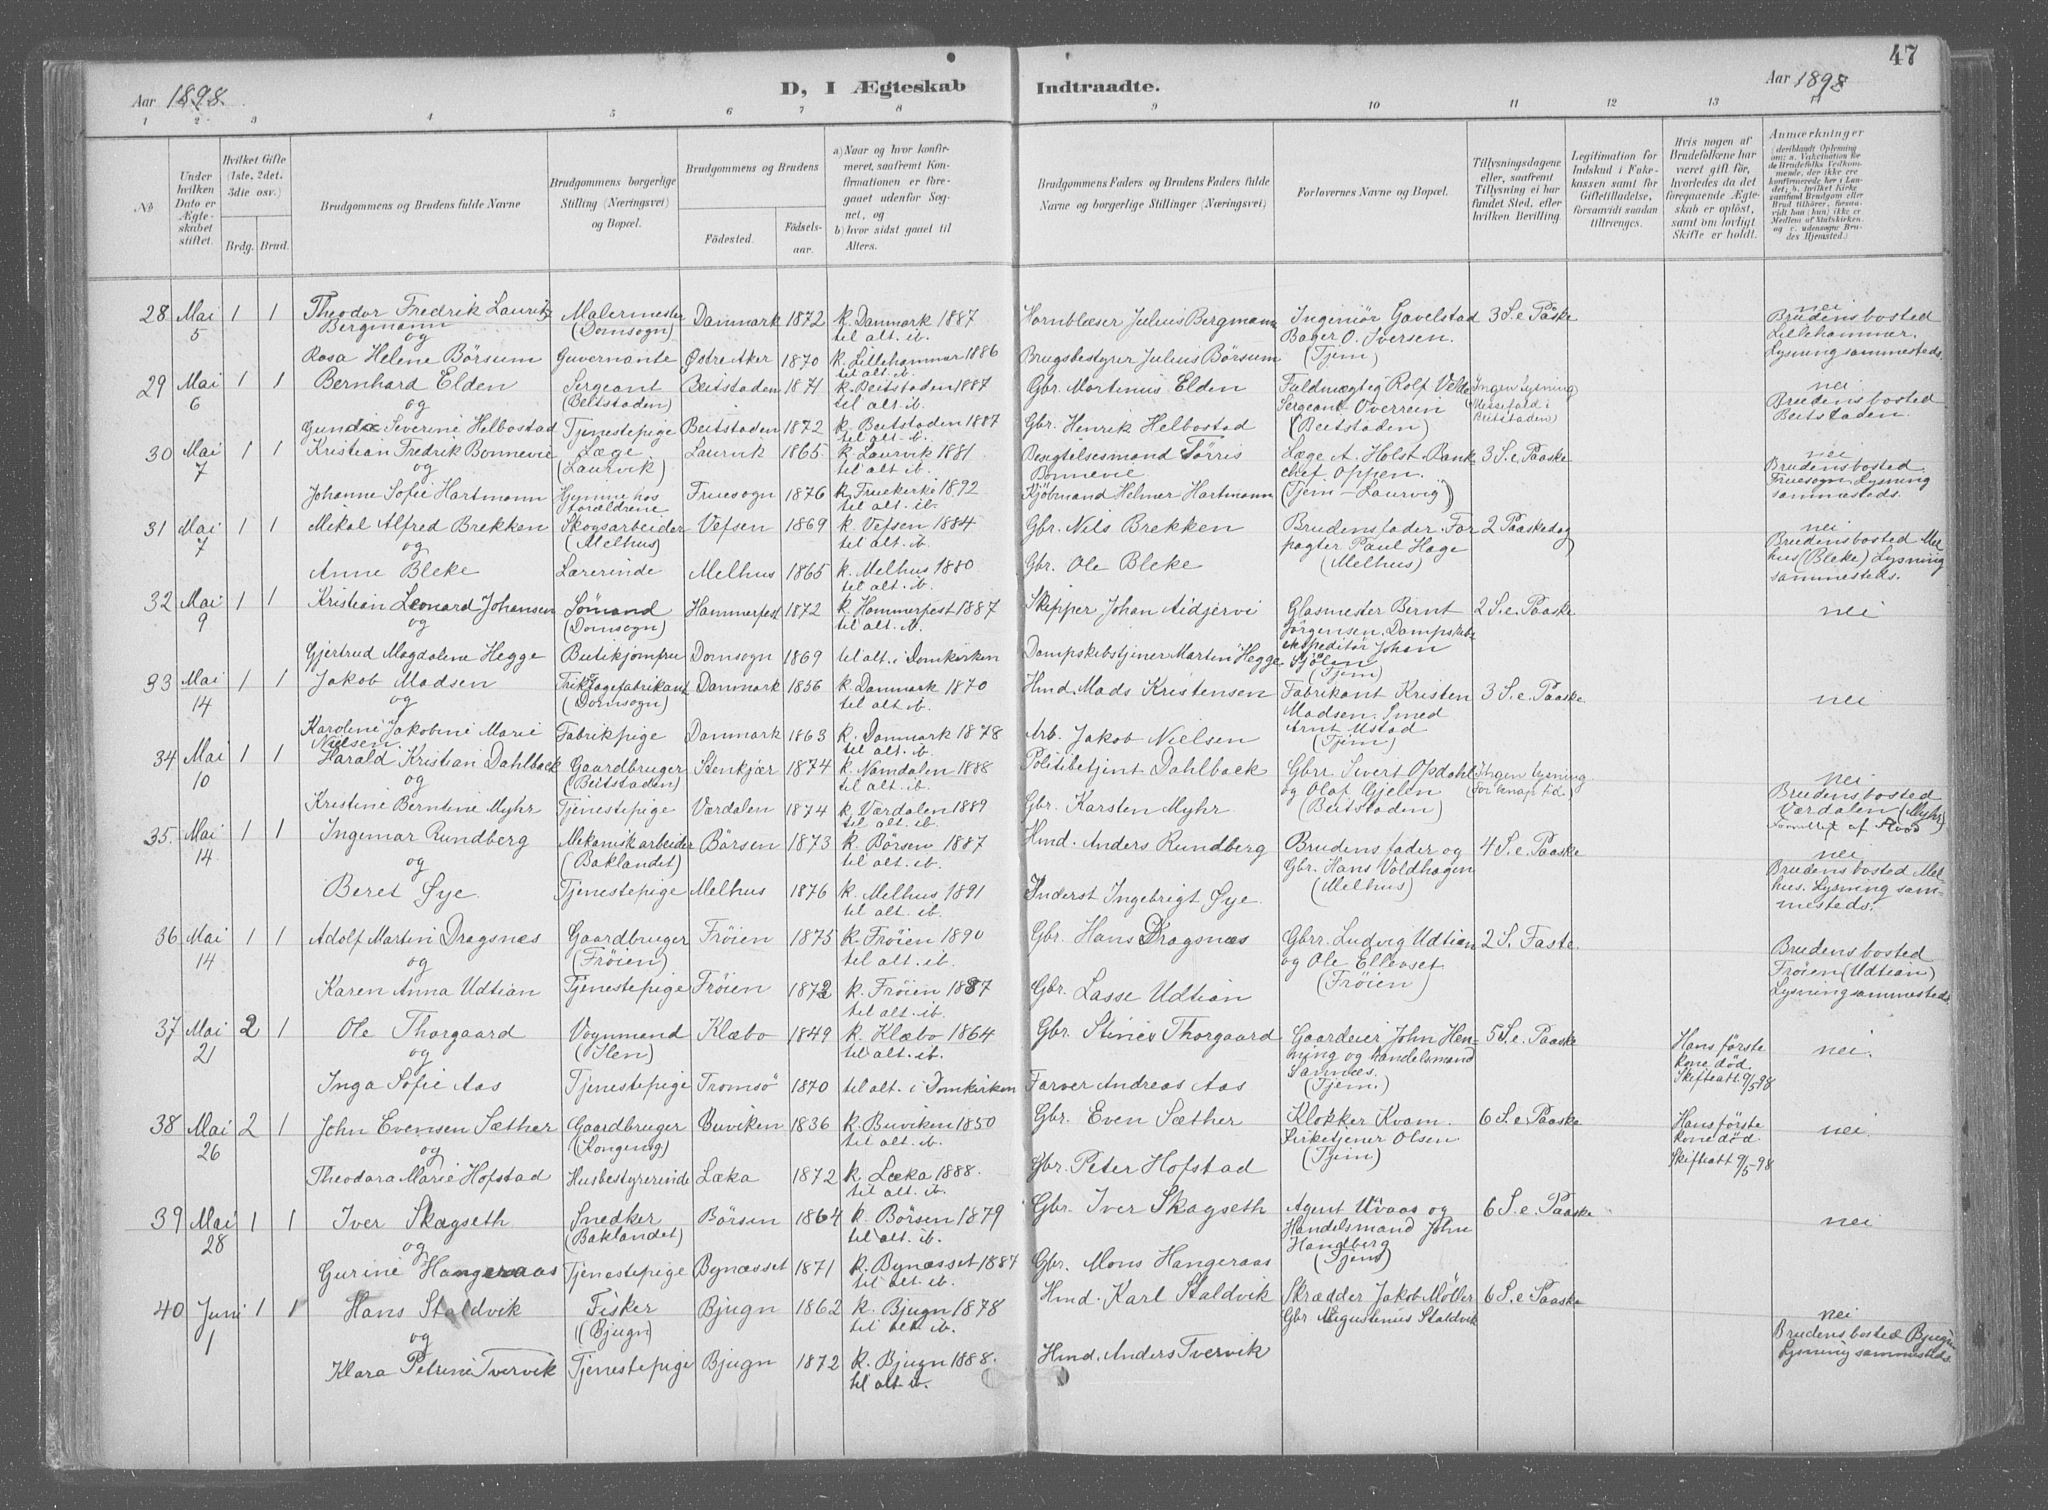 47
Aar 1898.
D, I Ægteskab Indtraadte.
Aar 1898
1 2 3 4 5 6 7 8 9 10 11 12 13
No
Under hvilken Dato er Ægteskabet stiftet.
Hvilket Gifte (1ste, 2det, 3die osv.)
Brdg. Brud.
Brudgommens og Brudens fulde Navne
Brudgommens borgerlige Stilling (Næringsvei) og Bopæl.
Brudgommens og Brudens
Födested.
Födselsaar.
a) Naar og hvor konfirmeret, saafremt Konfirmationen er foregaaet udenfor Sognet, og
b) hvor sidst gaaet til Alters.
Brudgommens Faders og Brudens Faders fulde Navne og borgerlige Stillinger (Næringsvei)
Forlovernes Navne og Bopæl.
Tillysningsdagene eller, saafremt Tillysning ei har fundet Sted, efter hvilken Bevilling
Legitimation for Indskud i Enkekassen samt for Giftetilladelse, forsaavidt saadan tiltrænges.
Hvis nogen af Brudefolkene har været gift för, hvorledes da det foregaaende Ægteskab er oplöst, samt om lovligt Skifte er holdt.
Anmærkninger (deriblandt Oplysning om: a. Vakcination for de Brudefolks Vedkommende, der ikke ere konfirmerede her i Landet; b. hvilket Kirkesamfund Brudgom eller Brud tilhörer, forsaavidt han (hun) ikke er Medlem af Statskirken, og c. udensogns Brudes Hjemsted.
28 Mai 5 1 1 Theodor Fredrik Lauritz Bergmann Malermester (Domsogn) Danmark 1872 k. Danmark 1887 til alt. ib. Hornblæser Julius Bergmann Ingeniør Gavelstad Bager O. Iversen. (Tjem) 3 S. e. Påske nei Brudens bosted Lillehammer. Lysning sammesteds.
og
Rosa Helene Börsum Guvernante Østre Aker 1870 k. Lillehammer 1886 til alt. ib. Brugsbestyrer Julius Börsum
29 Mai 6 1 1 Bernhard Elden Sergeant (Beitstaden) Beitstaden 1871 k. Beitstaden 1887 til alt. ib. Gbr. Mortinus Elden Fuldmægtig Rolf Velde Sergeant Overrein (Beitstaden) Ingen Lysning (Messefald i Beitstaden) nei Brudens bosted Beitstaden.
og
Gunda Severine Helbostad Tjenestepige Beitstaden 1872 k. Beitstaden 1887 til alt. ib. Gbr. Henrik Helbostad
30 Mai 7 1 1 Kristian Fredrik Bonnevie Læge (Laurvik) Laurvik 1865 k. Laurvik 1881 til alt. ib. Bonnevie Læge A. Holst. Bankchef Oppen. (Tjem - Laurvig) 3 S. e. Paaske nei Brudens bosted Fruesogn. Lysning sammesteds.
og
Johanne Sofie Hartmann Hjemme hos forældrene Fruesogn 1876 k. Fruekirke 1892 til alt. ib. Kjöbmand Helmer Hartmann
31 Mai 7 1 1 Mikal Alfred Brekken Skogsarbeider (Melhus) Vefsen 1869 k. Vefsen 1884 til alt. ib. Gbr. Nils Brekken Brudens fader. Forpagter Paul Hage (Melhus) 2 Paaskedag nei Brudens bosted Melhus (Bleke) Lysning sammesteds.
og
Anne Bleke Lærerinde Melhus 1865 k. Melhus 1880 til alt. ib. Gbr. Ole Bleke
32 Mai 9 1 1 Kristian Leonard Johansen Sömand (Domsogn) Hammerfest 1872 k. Hammerfest 1887 til alt. ib. Skipper Johan Aidjervi Glasmester Bernt Jörgensen. Dampskibsekspeditör Johan Sjölen (Tjem) 2 S. e. Paaske nei
og
Gjertrud Magdalene Hegge Butikjomfru Domsogn 1869 til alt. i Domkirken Dampskibstjener Martin Hegge
33 Mai 14 1 1 Jakob Madsen Trikotagefabrikant (Domsogn) Danmark 1856 k. Danmark 1870 til alt. ib. Hmd. Mads Kristensen Fabrikant Kristen Madsen. Smed Arnt Ustad (Tjem) 3 S. e. Paaske nei
og
Karoline Jakobine Marie Nielsen. Fabrikpige Danmark 1863 k. Danmark 1878 til alt. ib. Arb. Jakob Nielsen
34 Mai 10 1 1 Harald Kristian Dahlback Gaardbruger (Beitstaden) Stenkjær 1874 k. Namdalen 1888 til alt. ib. Politibetjent Dahlback Gbrr. Sivert Opdahl og Olaf Gjelen (Beitstaden) Ingen Lysning for knap tid nei Brudens bosted Værdalen (Myhr) Forrettet af Flood
og
Kristine Berntine Myhr Tjenestepige Værdalen 1874 k. Værdalen 1889 til alt. ib. Gbr. Karsten Myhr
35. Mai 14 1 1 Ingemar Rundberg Mekanisk arbeider (Baklandet) Börsen 1873 k. Börsen 1887 til alt. ib. Hmd. Anders Rundberg Brudens fader og Gbr. Hans Voldhagen (Melhus) 4 S. e. Paaske nei Brudens bosted Melhus. Lysning sammesteds.
og
Beret Øye. Tjenestepige Melhus 1876 k. Melhus 1891 til alt. ib. Inderst Ingebrigt Øye.
36 Mai 14 1 1 Adolf Martin Dragsnes Gaardbruger (Fröien) Fröien 1875 k. Fröien 1890 til alt. ib. Gbr. Hans Dragsnæs Gbrr. Ludvig Udtian og Ole Ellevset (Fröien) 2 S. Faste Brudens bosted Fröien (Udtian) Lysning sammesteds.
og
Karen Anna Udtian Tjenestepige Fröien 1872 k. Fröien 1887 til alt. ib. Gbr. Lasse Udtian
37 Mai 21 2 1 Ole Thorgaard Vognmand (Ilen) Klæbo 1849 k. Klæbo 1864 til alt. ib. Gbr. Thorgaard Gaardeier John Henning og handelsmand Sannæs. (Tjem.) 5 S. e. Paaske Hans förste kone död. Skifteatt. 9/5 98 nei.
og
Inga Sofie Aas Tjenestepige Tromsö 1870 til alt. i Domkirken Farver Andreas Aas
38 Mai 26 2 1 John Evensen Sæther Gaardbruger (Kongensg) Buviken 1836 k. Buviken 1850 til alt. ib. Gbr. Even Sæther Klokker Kvam. Kirketjener Olsen (Tjem) 6 S. e. Paaske Hans förste kone död. Skifteatt 9/5-98 nei.
og
Theodora Marie Hofstad Husbestyrerinde Læka 1872 k. Læka 1888. til alt. ib. Gbr. Peter Hofstad
39 Mai 28 1 1 Iver Skagseth Snedker (Baklandet) Börsen 1864 k. Börsen 1879 til alt. ib. Gbr. Iver Skagseth Agent Uvaas og Handelsmand John Handberg (Tjem) 6 S. e. Paaske nei
og
Gurine Hangeraas Tjenestepige Bynæsset 1871 k. Bynæsset 1887 til alt. ib. Gbr. Mons Hangeraas
40 Juni 1 1 1 Hans Staldvik Fisker (Bjugn) Bjugn 1862 k. Bjugn 1878 til alt. ib. Hmd. Karl Staldvik Skrædder Jakob Möller Gbr Augustinus Staldvik 6 S. e. Paaske nei Brudens bosted Bjugn Lysning sammesteds.
og
Klara Petrine Tvervik Tjenestepige Bjugn 1872 k. Bjugn 1888. til alt. ib. Hmd. Anders Tvervik